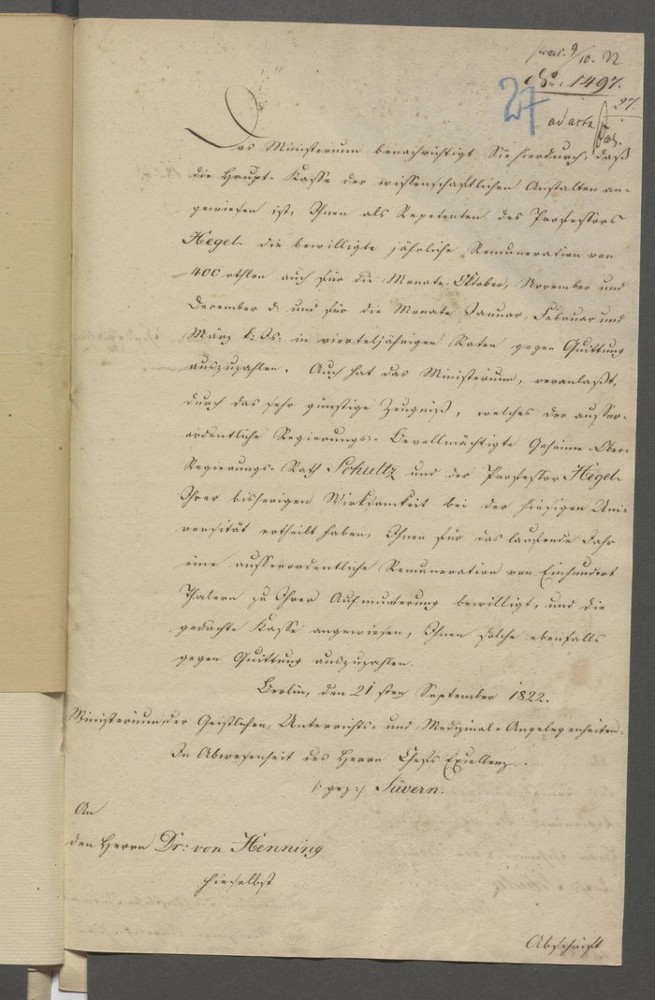 praes. 9/10. 22
No: 1497.
27
ad acta
Das Ministerium benachrichtigt Sie hierdurch, daß
die Haupt-Kasse der wissenschaftlichen Anstalten an-
gewiesen ist, Ihnen als Repetenten des Professors
Hegel die bewilligte jährliche Remuneration von
400 rthlrn auch für die Monate Oktober, November und
Dezember d. und für die Monate Januar, Februar und
März k: Js: in vierteljährigen Raten gegen Quittung
auszuzahlen. Auch hat das Ministerium, veranlaßt,
durch das sehr günstige Zeugniß, welches der ausser-
ordentliche Regierungs-Bevollmächtigte Geheime-Ober-
Regierungs-Rath Schultz und der Professor Hegel
Ihrer bisherigen Wirksamkeit bei der hiesigen Uni-
versität ertheilt haben, Ihnen für das laufende Jahr
eine ausserordentliche Remuneration von Einhundert
Thalern zu Ihrer Aufmunterung bewilligt, und die
gedachte Kasse angewiesen, Ihnen solche ebenfalls
gegen Quittung auszuzahlen.
Berlin, den 21sten September 1822.
Ministerium der Geistlichen, Unterrichts- und Medizinal-Angelegenheiten.
In Abwesenheit des Herrn Chefs Exzellenz.
/: gez :/ Süvern.
An
den Herrn Dr: von Henning
hieselbst
Abschrift